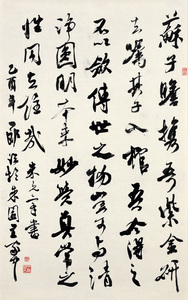 蘇子瞻携吾紫金研
去嘱其子入棺吾今得之
不以斂傳世之物豈可与清
净圓明本来妙覺真常之
性同去住哉 米元章書
乙酉年